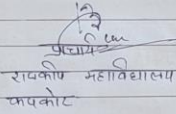 प्राचार्य
राजकीय महाविद्यालय
कपकोट